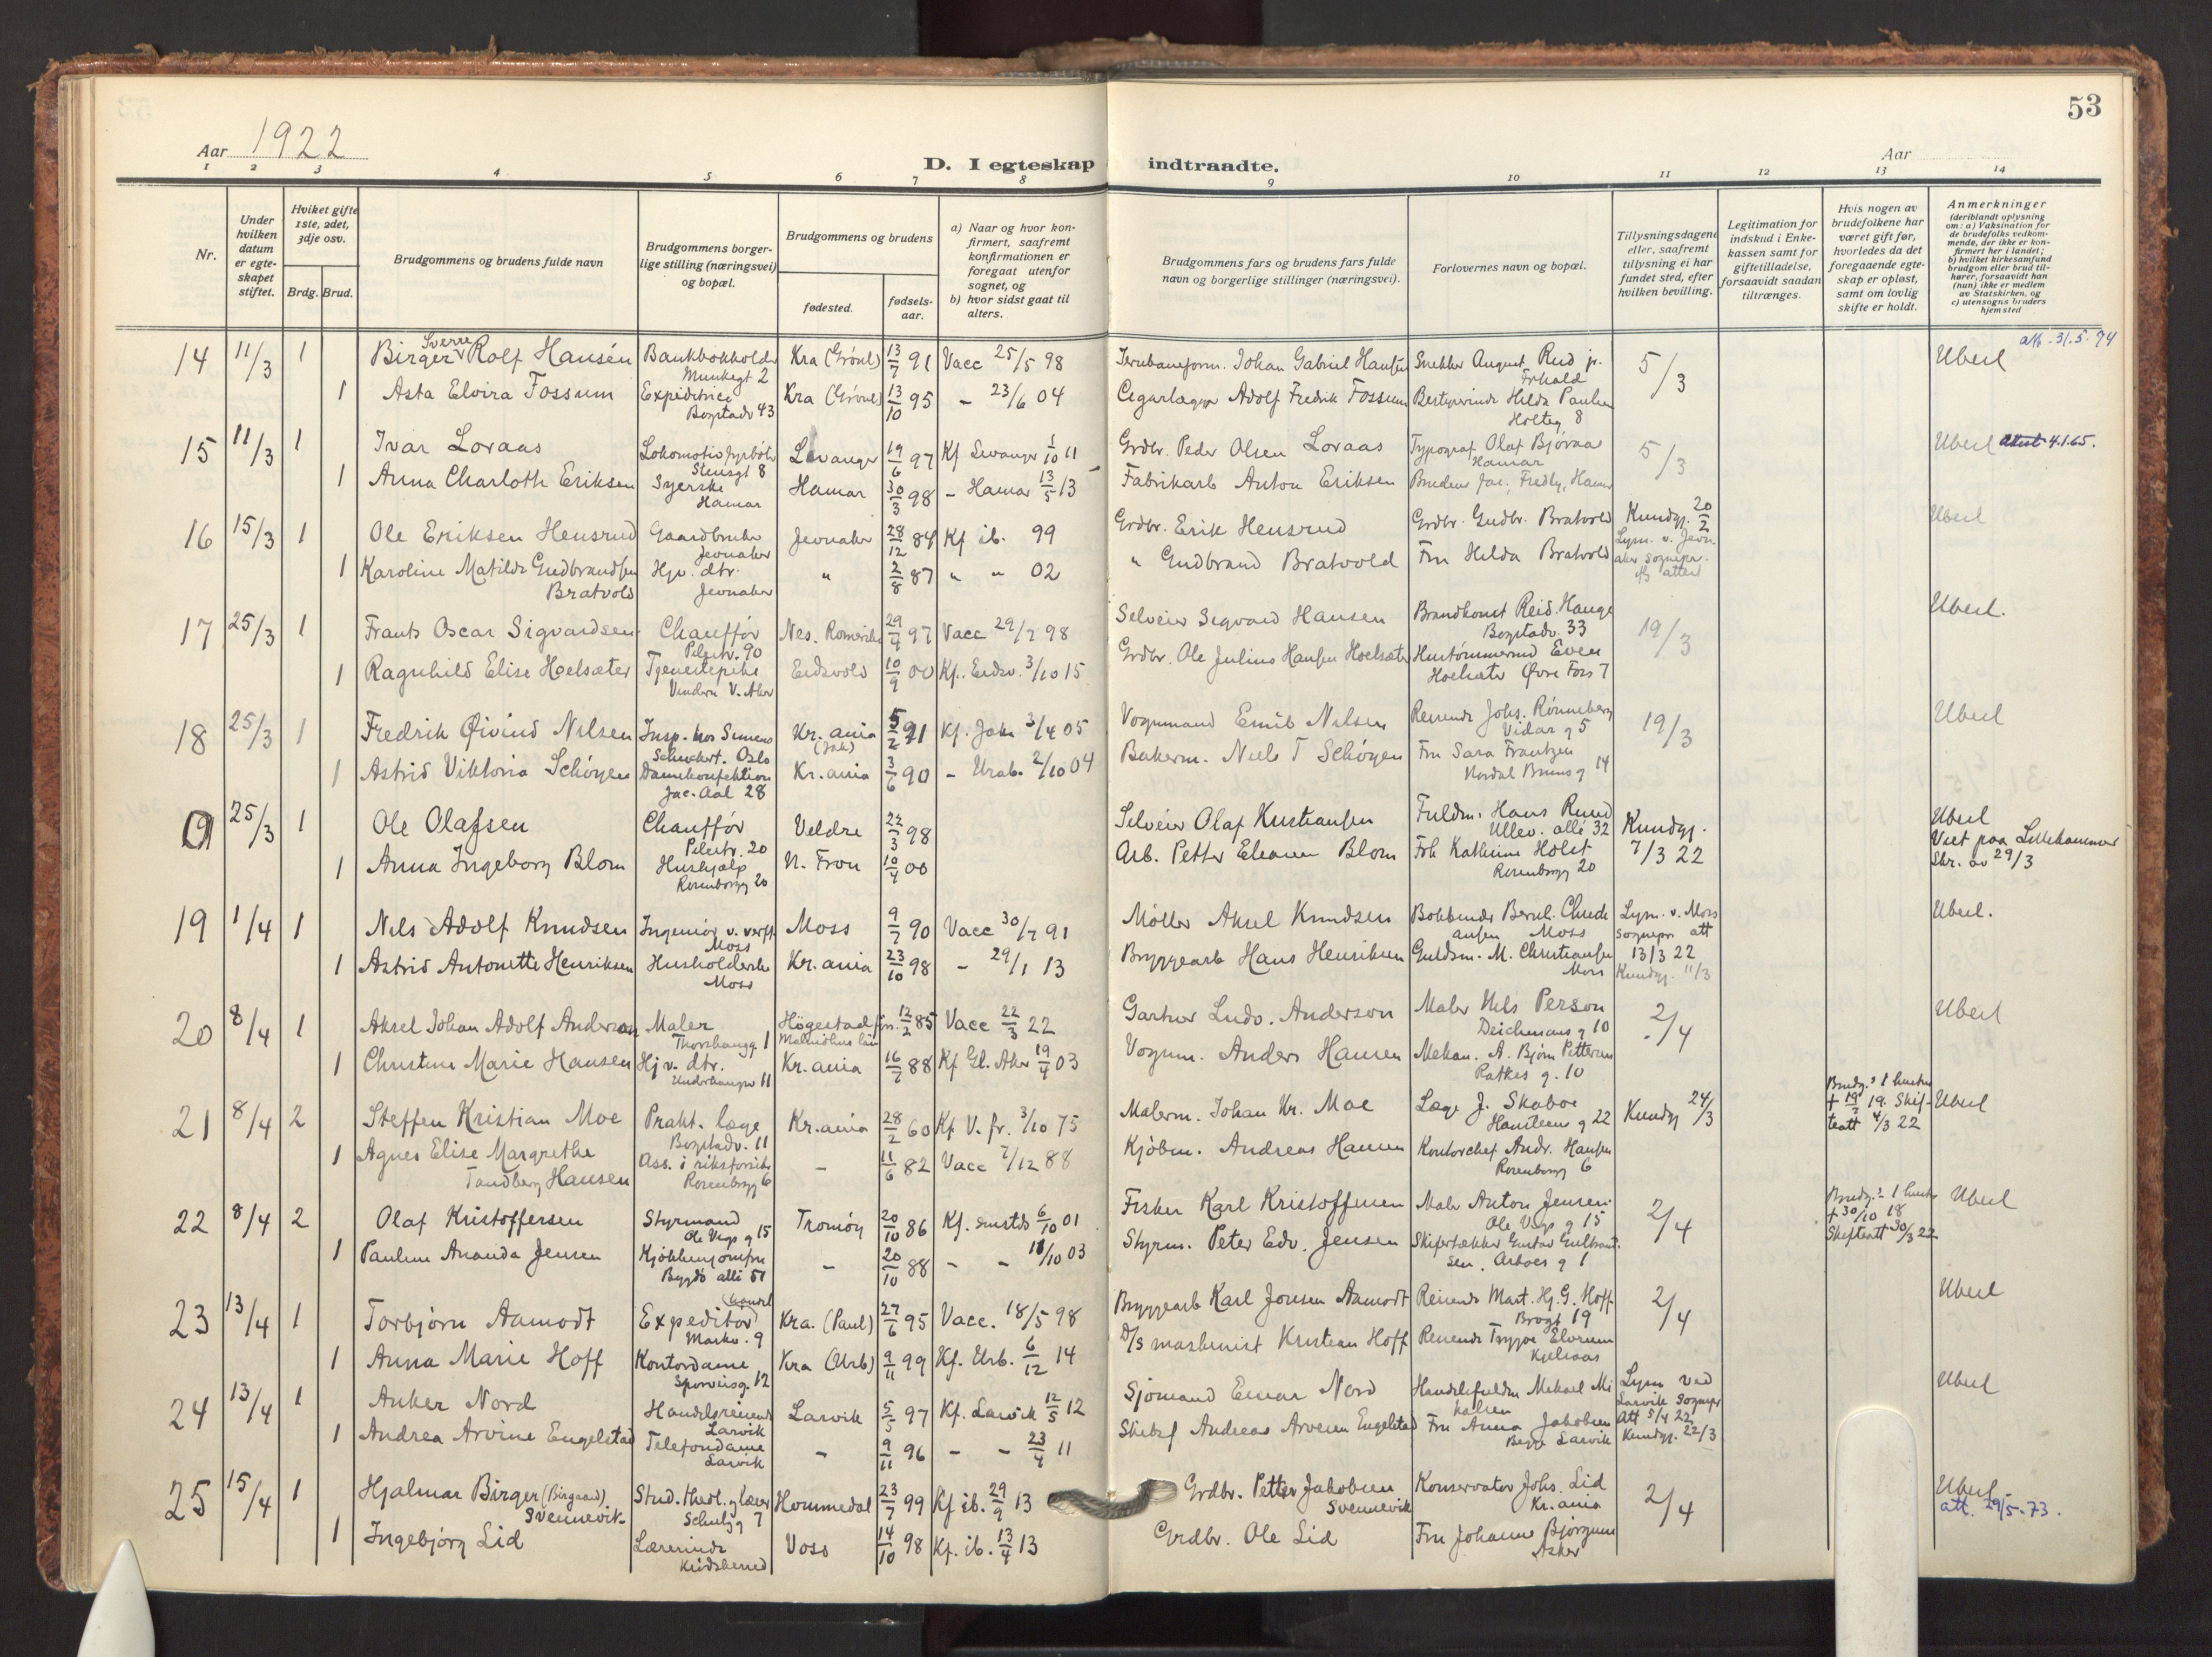 53
Aar 1922
D. I egteskap indtraadte.
Aar
1 2 3 4 5 6 7 8 9 10 11 12 13 14
Nr.
Under hvilken datum er egteskapet stiftet.
Hvilket gifte 1ste, 2det, 3dje osv.
Brdg. Brud.
Brudgommens og brudens fulde navn
Brudgommens borgerlige stilling (næringsvei) og bopæl.
Brudgommens og brudens
fødested.
fødselsaar.
a) Naar og hvor konfirmert, saafremt konfirmationen er foregaat utenfor sognet, og
b) hvor sidst gaat til alters.
Brudgommens fars og brudens fars fulde navn og borgerlige stillinger (næringsvei).
Forlovernes navn og bopæl.
Tillysningsdagene eller, saafremt tillysning ei har fundet sted, efter hvilken bevilling.
Legitimation for indskud i Enkekassen samt for giftetilladelse, forsaavidt saadan tiltrænges.
Hvis nogen av brudefolkene har været gift før, hvorledes da det foregaaende egteskap er opløst, samt om lovlig skifte er holdt.
Anmerkninger
(deriblandt oplysning om: a) Vaksination for de brudefolks vedkommende, der ikke er konfirmert her i landet; b) hvilket kirkesamfund brudgom eller brud tilhører, forsaavidt han (hun) ikke er medlem av Statskirken, og c) utensogns bruders hjemsted
14 11/3 1 Birger Sverre Rolf Hansen Bankbokholder Munkegt 2 Kra (Grønl) 13/7 91 Vacc 25/5 98 Jernbaneform. Johan Gabriel Hansen Snekker August Rud jr. 5/3 Uberl att. 31.5.74
1 Asta Elvira Fossum Expeditrice Bogstadv 43 Kra (Grønl) 13/10 95 - 23/6 04 Adolf Fredrik Fossum Hilda Paulsen Holteg 8
15 11/3 1 Ivar Loraas Lokomotivfyrbøter Stensgt 8 Levanger 19/6 97 Kf Levanger 1/10 11 Grdbr. Peder Olsen Loraas Typograf Olaf Bjøraas Hamar 5/3 Uberl 4.1.65.
1 Anna Charlotte Eriksen Syerske Hamar Hamar 30/3 98 - Hamar 13/5 13 Fabrikarb Anton Eriksen Brudens far, Hamar
16 15/3 1 Ole Eriksen Hensrud Gaardbruker Jevnaker Jevnaker 28/12 84 Kf ib. 99 Grdbr. Erik Hensrud Grdbr. Gudbr. Bratvold Kundgj. 20/2 Lysn. v. Jevnaker sognepr. Uberl
1 Karoline Matilde Gudbrandsen Bratvold Hjv. dtr. Jevnaker " 2/8 87 " " 02 " Gudbrand Bratvold Fru Hilda Bratvold
17 25/3 1 Frants Oscar Sigvardsen Chauffør Pilestr. 90 Nes. Romerike 29/4 97 Vacc 29/7 98 Selveier Sigvard Hansen Reid. Hauge Bogstadv. 33 19/3 Uberl.
1 Ragnhild Elise Hoelsæter Tjenestepike Vindern V. Aker Eidsvold 10/9 00 Kf. Eidsv. 3/10 15 Grdbr. Ole Julius Hansen Hoelsæter Even Hoelsæter Øvre Foss 7
18 25/3 1 Fredrik Øivind Nilsen Insp. hos Simens Schuckert. Oslo Kr.ania (Jak) 5/2 91 Kf. Jakr 3/4 05 Vognmand Emil Nilsen Reisende Johs. Rønneberg Vidar g 5 19/3 Uberl
1 Astrid Viktoria Schøyen Damekonfektion Jac. Aal 28 Kr.ania 3/6 90 - Uranb. 2/10 04 Bakerm. Niels T Schøyen Fru Sara Frantzen Nordal Bruns g 14
25/3 1 Ole Olafsen Chauffør Pilestr. 20 Veldre 22/3 98 Selveier Olaf Kristiansen Fuldm. Hans Ruud Ullev. allé 32 Kundgj. 7/3 22 Uberl Viet paa Lillehammer Skr. av 29/3
1 Anna Ingeborg Blom Hushjælp Rosenborgg 20 N. Fron 10/4 00 Arb. Petter Blom Frk Kathrine Holst Rosenborgg 20
19 1/4 1 Nils Adolf Knudsen Ingeniør v. verft Moss Moss 9/7 90 Vacc 30/7 91 Møller Aksel Knudsen Bokbinder Bernh. Christiansen Moss Lysn. v. Moss sognepr. att 13/3 22 Kundgj. 11/3 Uberl.
1 Astrid Antonette Henriksen Husholderske Moss Kr.ania 23/10 98 - 29/1 13 Bryggearb Hans Henriksen Guldsm. M. Christiansen Moss
20 8/4 1 Aksel Johan Adolf Anderson Maler Thorshaugg. 1 Högestad frs. Malmöhus län 12/2 85 Vacc 22/3 22 Gartner Ludv. Anderson Maler Nils Person Deichmans g 10 2/4 Uberl
1 Christine Marie Hansen Hjv. dtr. Underhaugsv 11 Kr.ania 16/7 88 Kf Gl. Aker 19/4 03 Vognm. Anders Hansen Mekan. A. Bjørn Pettersen Ratkes g. 10
21 8/4 2 Steffen Kristian Moe Prakt. læge Bogstadv. 11 Kr.ania 28/2 60 Kf V. fr. 3/10 75 Malerm. Johan Kr. Moe Læge J. Skaboe Hansteens g 22 Kundgj 24/3 Brudg.s 1 hustru † 19/7 19. Skifteatt 4/3 22 Uberl
1 Agnes Elise Margrethe Tandberg Hansen Ass. i riksforsikr Rosenborgg 6 - 11/6 82 Vacc 7/12 88 Kjøbm. Andreas Hansen Kontorchef Andr. Hansen Rosenborgg 6
22 8/4 2 Olaf Kristoffersen Styrmand Ole Vigs g 15 Tromøy 20/10 86 Kf. smstds 6/10 01 Fisker Karl Kristoffersen Maler Anton Jensen Ole Vigs g 15 2/4 Brudg.s 1 hustr † 30/10 18 Skifteatt 30/3 22 Uberl
1 Pauline Amanda Jensen Kjøkkenjomfru Bygdø allé 51 - 20/10 88 - - 11/10 03 Styrm. Peter Edv. Jensen Skifertækker Gustav Gulbrandsen. Arboes g 1
23 13/4 1 Torbjørn Aamodt Expeditør (handel) Markv. 9 Kra. (Paul) 27/6 95 Vacc. 18/5 98 Bryggearb Karl Jonsen Aamodt Reisende Mart. Hj. G. Hoff Brogt 19 2/4 Uberl
1 Anna Marie Hoff Kontordame Sporveisg. 12 Kra (Urb) 9/11 99 Kf. Urb. 6/12 14 D/S maskinist Kristian Hoff Reisende Trygve Elvrum Kjelsaas
24 13/4 1 Anker Nord Handelsreisende Larvik Larvik 5/5 97 Kf. Larvik 12/5 12 Sjømand Einar Nord Handelsfuldm Mikael Mikalsen Lysn ved Larvik sognepr Att 5/4 22 Kundgj. 22/3 Uberl
1 Andrea Arvine Engelstad Telefondame Larvik - 9/11 96 - - 23/4 11 Andreas Arvesen Engelstad Fru Anna Jakobsen Begge Larvik
25 15/4 1 Hjalmar Birger (Birgaard) Svennevik Stud. theol. g lærer Schultzg 7 Hommedal 23/7 99 Kf ib. 29/9 13 Grdbr. Petter Jakobsen Svennevik Konservator Johs. Lid Kr.ania 2/4 Uberl. att. 29/5-73.
1 Ingebjørg Lid Lærerinde Krødsherred Voss 14/10 98 Kf. ib. 13/4 13 Grdbr. Ole Lid Fru Johanne Bjørgum Asker